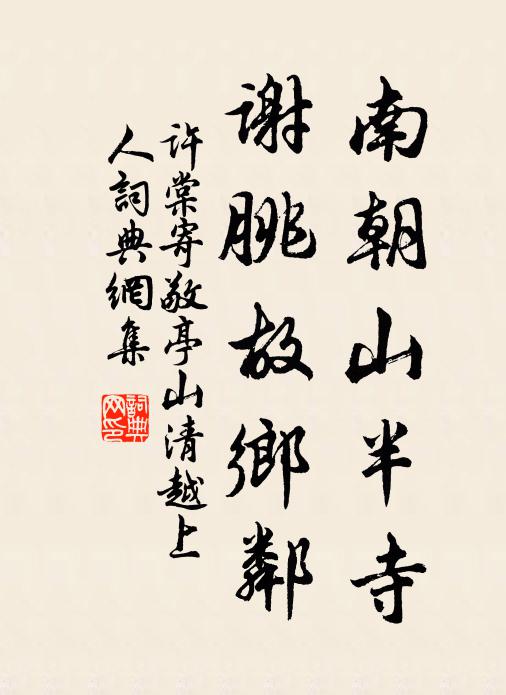 南朝山半寺
謝朓故鄉鄰
許棠寄敬亭山清越上
人詞典網集
詞典
网印